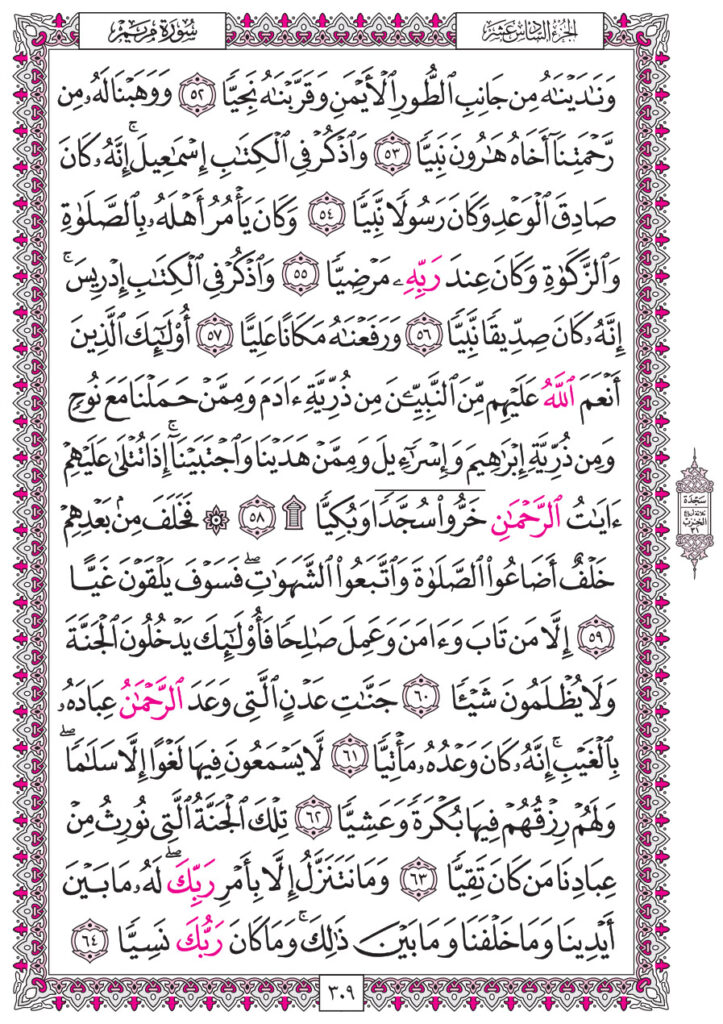 الجزء السادس عشر
سورة مريم
وَنَٰدَيۡنَٰهُ مِن جَانِبِ ٱلطُّورِ ٱلۡأَيۡمَنِ وَقَرَّبۡنَٰهُ نَجِيّٗا ٥٢ وَوَهَبۡنَا لَهُۥ مِن
رَّحۡمَتِنَآ أَخَاهُ هَٰرُونَ نَبِيّٗا ٥٣ وَٱذۡكُرۡ فِي ٱلۡكِتَٰبِ إِسۡمَٰعِيلَۚ إِنَّهُۥ كَانَ
صَادِقَ ٱلۡوَعۡدِ وَكَانَ رَسُولٗا نَّبِيّٗا ٥٤ وَكَانَ يَأۡمُرُ أَهۡلَهُۥ بِٱلصَّلَوٰةِ
وَٱلزَّكَوٰةِ وَكَانَ عِندَ رَبِّهِۦ مَرۡضِيّٗا ٥٥ وَٱذۡكُرۡ فِي ٱلۡكِتَٰبِ إِدۡرِيسَۚ
إِنَّهُۥ كَانَ صِدِّيقٗا نَّبِيّٗا ٥٦ وَرَفَعۡنَٰهُ مَكَانًا عَلِيًّا ٥٧ أُوْلَٰٓئِكَ ٱلَّذِينَ
أَنۡعَمَ ٱللَّهُ عَلَيۡهِم مِّنَ ٱلنَّبِيِّـۧنَ مِن ذُرِّيَّةِ ءَادَمَ وَمِمَّنۡ حَمَلۡنَا مَعَ نُوحٖ
وَمِن ذُرِّيَّةِ إِبۡرَٰهِيمَ وَإِسۡرَٰٓءِيلَ وَمِمَّنۡ هَدَيۡنَا وَٱجۡتَبَيۡنَآۚ إِذَا تُتۡلَىٰ عَلَيۡهِمۡ
ءَايَٰتُ ٱلرَّحۡمَٰنِ خَرُّواْۤ سُجَّدٗاۤ وَبُكِيّٗا ۩ ٥٨ ۞ فَخَلَفَ مِنۢ بَعۡدِهِمۡ
خَلۡفٌ أَضَاعُواْ ٱلصَّلَوٰةَ وَٱتَّبَعُواْ ٱلشَّهَوَٰتِۖ فَسَوۡفَ يَلۡقَوۡنَ غَيًّا
٥٩ إِلَّا مَن تَابَ وَءَامَنَ وَعَمِلَ صَٰلِحٗا فَأُوْلَٰٓئِكَ يَدۡخُلُونَ ٱلۡجَنَّةَ
وَلَا يُظۡلَمُونَ شَيۡـٔٗا ٦٠ جَنَّٰتِ عَدۡنٍ ٱلَّتِي وَعَدَ ٱلرَّحۡمَٰنُ عِبَادَهُۥ
بِٱلۡغَيۡبِۚ إِنَّهُۥ كَانَ وَعۡدُهُۥ مَأۡتِيّٗا ٦١ لَّا يَسۡمَعُونَ فِيهَا لَغۡوًا إِلَّا سَلَٰمٗاۖ
وَلَهُمۡ رِزۡقُهُمۡ فِيهَا بُكۡرَةٗ وَعَشِيّٗا ٦٢ تِلۡكَ ٱلۡجَنَّةُ ٱلَّتِي نُورِثُ مِنۡ
عِبَادِنَا مَن كَانَ تَقِيّٗا ٦٣ وَمَا نَتَنَزَّلُ إِلَّا بِأَمۡرِ رَبِّكَۖ لَهُۥ مَا بَيۡنَ
أَيۡدِينَا وَمَا خَلۡفَنَا وَمَا بَيۡنَ ذَٰلِكَۚ وَمَا كَانَ رَبُّكَ نَسِيّٗا ٦٤
سجدة
ثلاثة أرباع
الحزب
٣١
٣٠٩